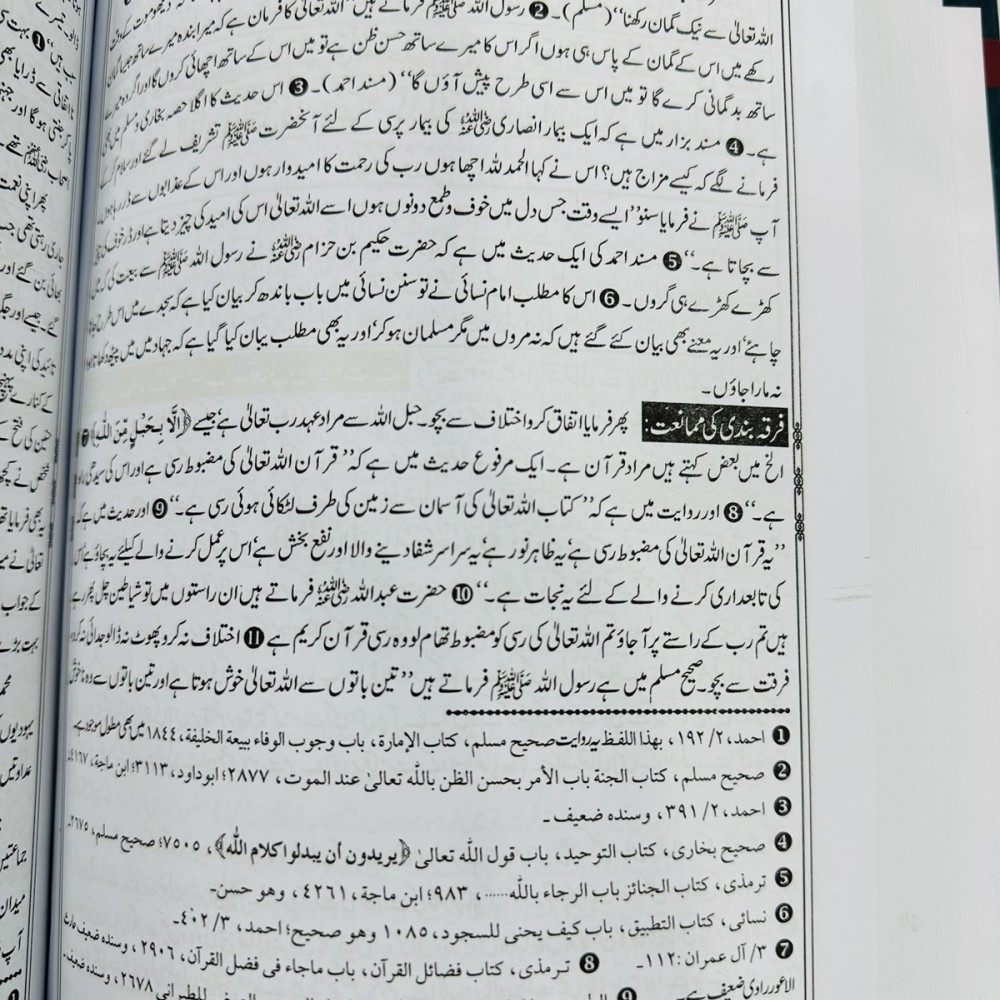 اللہ تعالیٰ سے نیک گمان رکھنا‘‘ (مسلم)۔ ❷ رسول اللہ ﷺ فرماتے ہیں ’’اللہ تعالیٰ کا فرمان ہے کہ میرا بندہ میرے ساتھ جیسا گمان
رکھے میں اس کے گمان کے پاس ہی ہوں اگر اس کا میرے ساتھ حسن ظن ہے تو میں اس کے ساتھ اچھائی کروں گا اور اگر وہ میرے
ساتھ بدگمانی کرے گا تو میں اس سے اسی طرح پیش آؤں گا‘‘ (مسند احمد)۔ ❸ اس حدیث کا اگلا حصہ بخاری و مسلم میں بھی
ہے۔ ❹ مسند بزار میں ہے کہ ایک بیمار انصاری رضی اللہ عنہ کی بیمار پرسی کے لئے آنحضرت ﷺ تشریف لے گئے اور سلام کر کے
فرمانے لگے کہ کیسے مزاج ہیں؟ اس نے کہا الحمد للہ اچھا ہوں رب کی رحمت کا امیدوار ہوں اور اس کے عذابوں سے ڈر رہا ہوں
آپ ﷺ نے فرمایا سنو ’’ایسے وقت جس دل میں خوف و طمع دونوں ہوں اسے اللہ تعالیٰ اس کی امید کی چیز دیتا ہے اور ڈر خوف کی چیز
سے بچاتا ہے۔‘‘ ❺ مسند احمد کی ایک حدیث میں ہے کہ حضرت حکیم بن حزام رضی اللہ عنہ نے رسول اللہ ﷺ سے بیعت کی کہ میں
کھڑے کھڑے ہی گروں۔ ❻ اس کا مطلب امام نسائی نے تو سنن نسائی میں باب باندھ کر بیان کیا ہے کہ سجدے میں اس طرح جانا
چاہئے اور یہ معنے بھی بیان کئے گئے ہیں کہ نہ مروں میں مگر مسلمان ہو کر اور یہ بھی مطلب بیان کیا گیا ہے کہ جہاد میں میں پیٹھ دکھاتا ہوا
نہ مارا جاؤں۔
فرقہ بندی کی ممانعت: پھر فرمایا اتفاق کرو اختلاف سے بچو۔ حبل اللہ سے مراد عہد رب تعالیٰ ہے جیسے ﴿اِلَّا بِحَبْلٍ مِّنَ اللّٰهِ﴾ ❼
الخ میں بعض کہتے ہیں مراد قرآن ہے۔ ایک مرفوع حدیث میں ہے کہ ’’قرآن اللہ تعالیٰ کی مضبوط رسی ہے اور اس کی سیدھی راہ
ہے۔‘‘ ❽ اور روایت میں ہے کہ ’’کتاب اللہ تعالیٰ کی آسمان سے زمین کی طرف لٹکائی ہوئی رسی ہے۔‘‘ ❾ اور حدیث میں ہے کہ
’’یہ قرآن اللہ تعالیٰ کی مضبوط رسی ہے یہ ظاہر نور ہے یہ سراسر شفا دینے والا اور نفع بخش ہے اس پر عمل کرنے والے کیلئے یہ بچاؤ ہے اس
کی تابعداری کرنے والے کے لئے یہ نجات ہے۔‘‘ ❿ حضرت عبداللہ رضی اللہ عنہ فرماتے ہیں ان راستوں میں تو شیاطین چل پھر رہے
ہیں تم رب کے راستے پر آ جاؤ تم اللہ تعالیٰ کی رسی کو مضبوط تھام لو وہ رسی قرآن کریم ہے ⓫ اختلاف نہ کرو پھوٹ نہ ڈالو جدائی نہ کرو
فرقت سے بچو۔ صحیح مسلم میں ہے رسول اللہ ﷺ فرماتے ہیں ’’تین باتوں سے اللہ تعالیٰ خوش ہوتا ہے اور تین باتوں سے وہ ناخوش
❶ احمد، ٢/ ١٩٢، بهذا اللفظ یہ روایت صحیح مسلم، کتاب الإمارة، باب وجوب الوفاء ببیعة الخلیفة، ١٨٤٤ میں بھی مطول موجود ہے۔
❷ صحیح مسلم، کتاب الجنة باب الأمر بحسن الظن باللّٰه تعالیٰ عند الموت، ٢٨٧٧؛ ابوداود، ٣١١٣؛ ابن ماجة، ٤١٦٧۔
❸ احمد، ٢/ ٣٩١، وسنده ضعیف۔
❹ صحیح بخاری، کتاب التوحید، باب قول اللّٰه تعالیٰ ﴿یریدون أن یبدلوا کلام اللّٰه﴾، ٧٥٠٥؛ صحیح مسلم، ٢٦٧٥۔
❺ ترمذی، کتاب الجنائز باب الرجاء باللّٰه......، ٩٨٣؛ ابن ماجة، ٤٢٦١، وهو حسن۔
❻ نسائی، کتاب التطبیق، باب کیف یحنی للسجود، ١٠٨٥ وهو صحیح؛ احمد، ٣/ ٤٠٢۔
❼ ٣/ آل عمران: ١١٢۔ ❽ ترمذی، کتاب فضائل القرآن، باب ماجاء فی فضل القرآن، ٢٩٠٦، وسنده ضعیف حارث
الاعور راوی ضعیف ہے۔ ❾